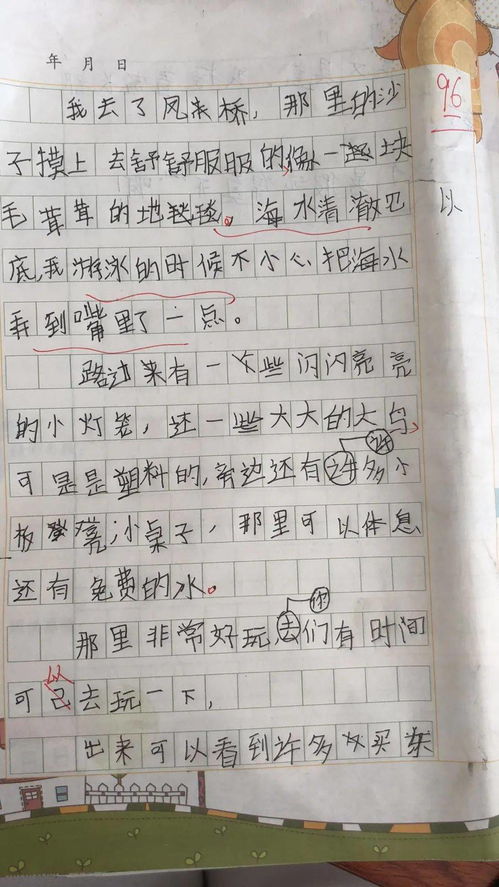 年 月 日
我去了风来桥，那里的沙 96
子摸上去舒舒服服的像一块
毛茸茸的地毯。海水清澈见 以
底,我游泳的时候不小心把海水
弄到嘴里了一点。
路过来有一些闪闪亮亮
的小灯笼，还一些大大的大鸟
可是是塑料的,旁边还有许多小
板凳小桌子，那里可以体息
还有免费的水。
那里非常好玩你们有时间
可以去玩一下,
出来可以看到许多买东